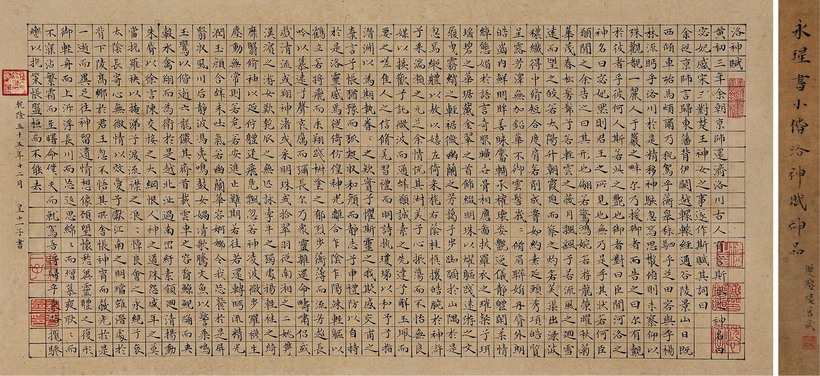 洛神賦
黃初三年余朝京師還濟洛川古人有言斯水之神名曰
宓妃感宋玉對楚王神女之事遂作斯賦其詞曰
余從京師言歸東藩背伊闕越轘轅經通谷陵景山日既
西傾車殆馬煩爾乃稅駕乎蘅皋秣駟乎芝田容與乎楊
林流眄乎洛川於是精移神駭忽焉思散俯則未察仰以
殊觀覩一麗人于巖之畔爾乃援御者而告之曰爾有覿
於彼者乎彼何人斯若此之豔也御者對曰臣聞河洛之
神名曰宓妃然則君王之所見也無乃是乎其狀若何臣
願聞之余告之曰其形也翩若驚鴻婉若游龍榮曜秋菊
華茂春松髣髴兮若輕雲之蔽月飄颻兮若流風之迴雪
遠而望之皎若太陽升朝霞迫而察之灼若芙蕖出淥波
穠纖得中脩短合度肩若削成腰如約素延頸秀項皓質
呈露芳澤無加鉛華不御雲髻峩峩脩眉聯娟丹脣外朗
皓齒內鮮明眸善睞靨輔承權瓌姿豔逸儀靜體閑柔情
綽態媚於語言奇服曠世骨像應圖披羅衣之璀粲兮珥
瑤碧之華琚戴金翠之首飾綴明珠以耀軀踐遠游之文
履曳霧綃之輕裾微幽蘭之芳藹兮步踟躕於山隅於是
忽焉縱體以遨以嬉左倚采旄右蔭桂旗攘皓腕於神滸
兮采湍瀨之玄芝余情悅其淑美兮心振蕩而不怡無良
媒以接懽兮託微波而通辭願誠素之先達兮解玉珮而
要之嗟佳人之信脩羌習禮而明詩抗瓊珶以和予兮指
潛淵以為期執眷眷之款實兮懼斯靈之我欺感交甫之
棄言兮悵猶豫而狐疑收和顏而靜志兮申禮防以自持
於是洛靈感焉徙倚傍徨神光離合乍陰乍陽竦輕軀以
鶴立若將飛而未翔踐椒塗之郁烈步蘅薄而流芳超長
吟以永慕兮聲哀厲而彌長爾乃眾靈雜遝命儔嘯侶或
戲清流或翔神渚或采明珠或拾翠羽從南湘之二妃攜
漢濱之游女歎匏瓜之無匹詠牽牛之獨處揚輕袿之綺
靡翳脩袖以延佇體迅飛鳧飄忽若神凌波微步羅襪生
塵動無常則若危若安進止難期若往若還轉眄流精光
潤玉顏含辭未吐氣若幽蘭華容婀娜令我忘餐於是屏
翳收風川后靜波馮夷鳴鼓女媧清歌騰文魚以警乘鳴
玉鸞以偕逝六龍儼其齊首載雲車之容裔鯨鯢踊而夾
轂水禽翔而為衛於是越北沚過南岡紆素領迴清揚動
朱脣以徐言陳交接之大綱恨人神之道殊怨盛年之莫
當抗羅袂以掩涕兮淚流襟之浪浪悼良會之永絕兮哀
太陰長寄心無微情以效愛兮獻江南之明璫雖潛處於
背下陵高於君王忽不悟其所舍悵神宵而蔽光於是
一逝而異足往神留遺情想像顧望懷愁冀靈體之復形
御輕舟而上泝浮長川而忘返思緜緜而增慕夜耿耿而
不寐霑繁霜而至曙命僕夫而就駕吾將歸乎東路攬騑
轡以抗策悵盤桓而不能去
乾隆五十五年十二月 皇十一子書
永瑆書小楷洛神賦神品